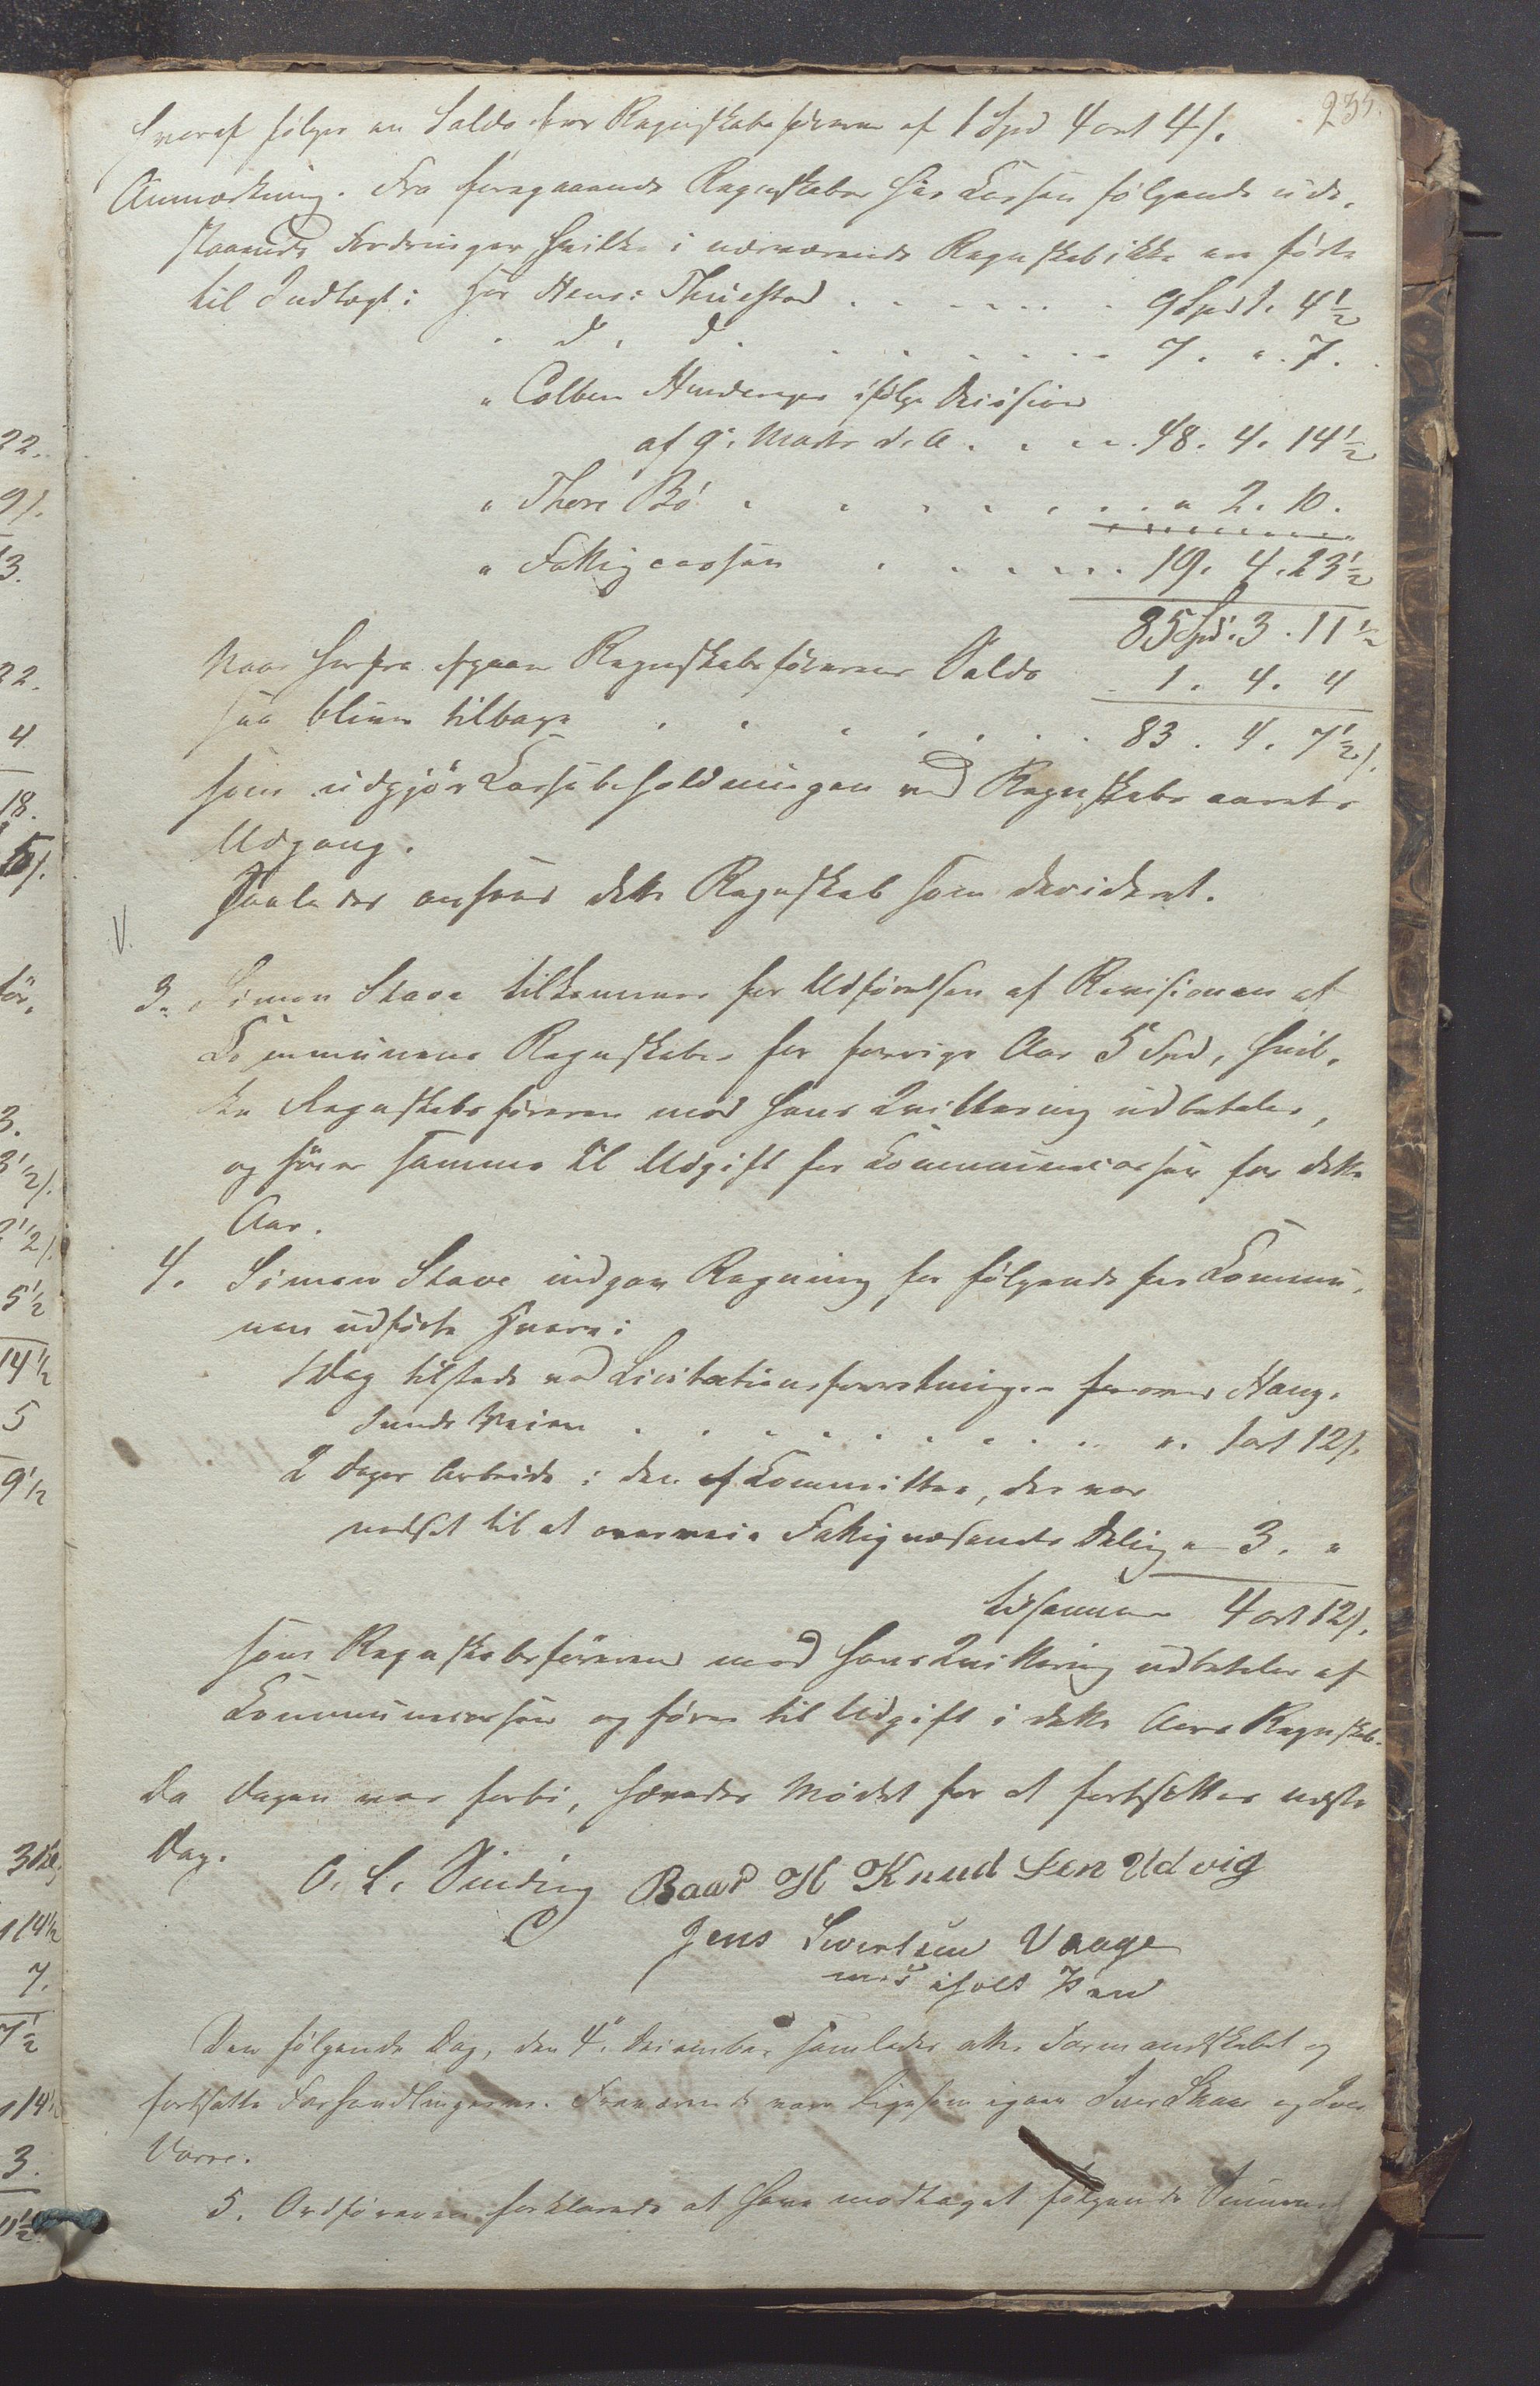 235.
hvoraf følger en Saldo for Regnskabsføreren af 1 Spd 4 ort 4 s.
Anmærkning. Fra foregaaende Regnskaber har Cassen følgende ude-
staaende Fordringer hvilke i nærværende Regnskab ikke ere førte
til Indtægt: hos Hans Thuestad . . . . . . 9 Spd 1. 4½
" d. d. . . . . . . 7. ". 7.
" Colben Hindenes ifølge Decision
af 9. Marts d. A. . . . . 48. 4. 14½
" Thore Bø . . . . . . . " 2. 10.
" Fattigcassen . . . . . . 19. 4. 23½
85 Spd. 3. 11½
Naar herfra afgaaer Regnskabsførerens Saldo 1. 4. 4
saa bliver tilbage . . . . . . . 83. 4. 7½ s.
som udgjør Cassebeholdningen ved Regnskabsaarets
Udgang.
Saaledes ansaaes dette Regnskab som decideret.
V.
3. Simon Stave tilkommer for Udførelsen af Revisionen af
Communens Regnskaber for forrige Aar 5 Spd, hvil-
ke Regnskabsføreren mod hans Qvittering udbetaler,
og fører samme til Udgift for Communecassen for dette
Aar.
4. Simon Stave indgav Regning for følgende for Commu-
nen udførte Hverv:
1 Dag tilstede ved Licitationsforretningen over Haug-
sunds Veien . . . . . . . . . ". 1 ort 12 s.
2 Dages Arbeide i den Committee, der var
nedsat til at overveie Fattigvæsenets Deling " 3. "
tilsammen 4 ort 12 s.
som Regnskabsføreren mod hans Qvittering udbetaler af
Communecassen og fører til Udgift i dette Aars Regnskab.
Da Dagen var forbi, hævedes Mødet for at fortsættes næste
Dag.
O. L. Sinding Baar H Knud Sen Udvig
Jens Sivertsen Vaage
med iholt Pen
Den følgende Dag, den 4. December samledes atter Formandskabet og
fortsatte Forhandlingerne. Fraværende vare ligesom igaar Iver Skaar og Iver
Vorre.
5. Ordføreren forklarede at have modtaget følgende Summer